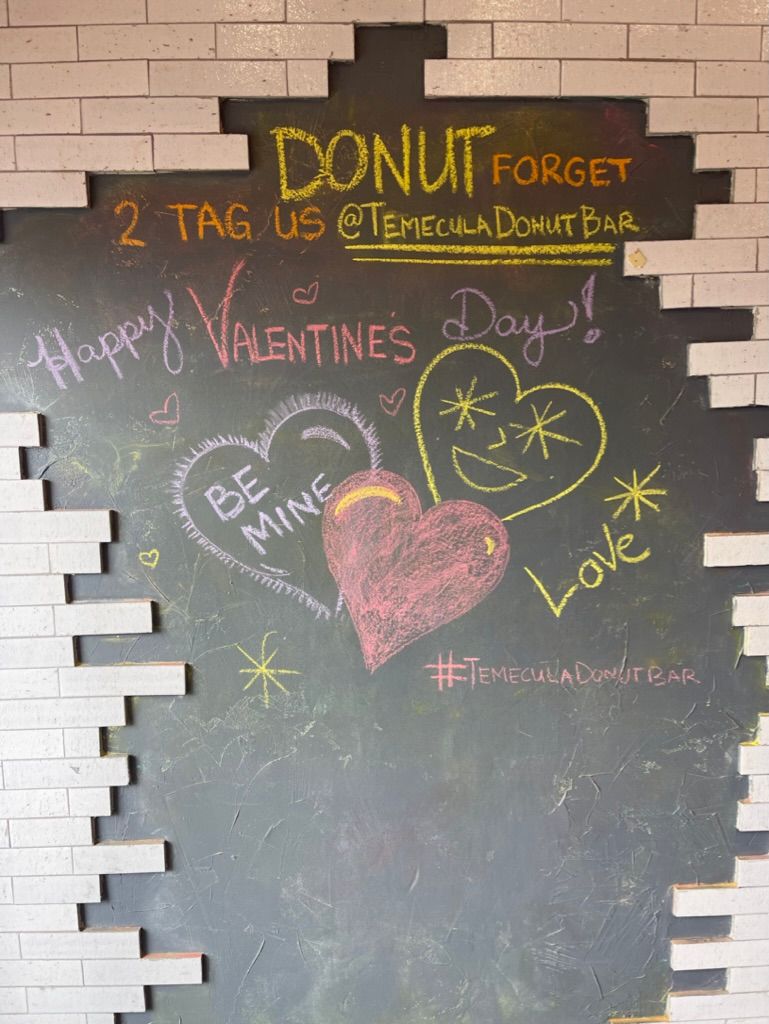 DONUT FORGET
2 TAG US @TEMECULADONUTBAR
Happy VALENTINE'S Day!
BE
MINE
Love
#TEMECULADONUTBAR